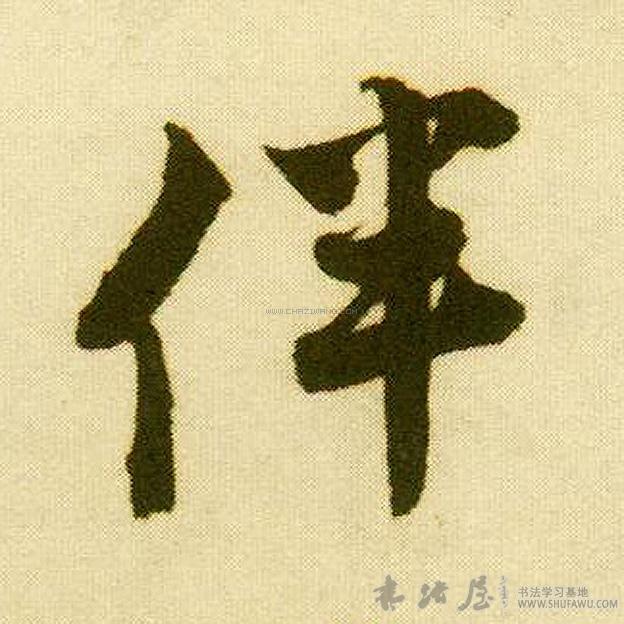 伴
WWW.CHAZIWANG.COM
书法屋
书法学习基地
WWW.SHUFAWU.COM